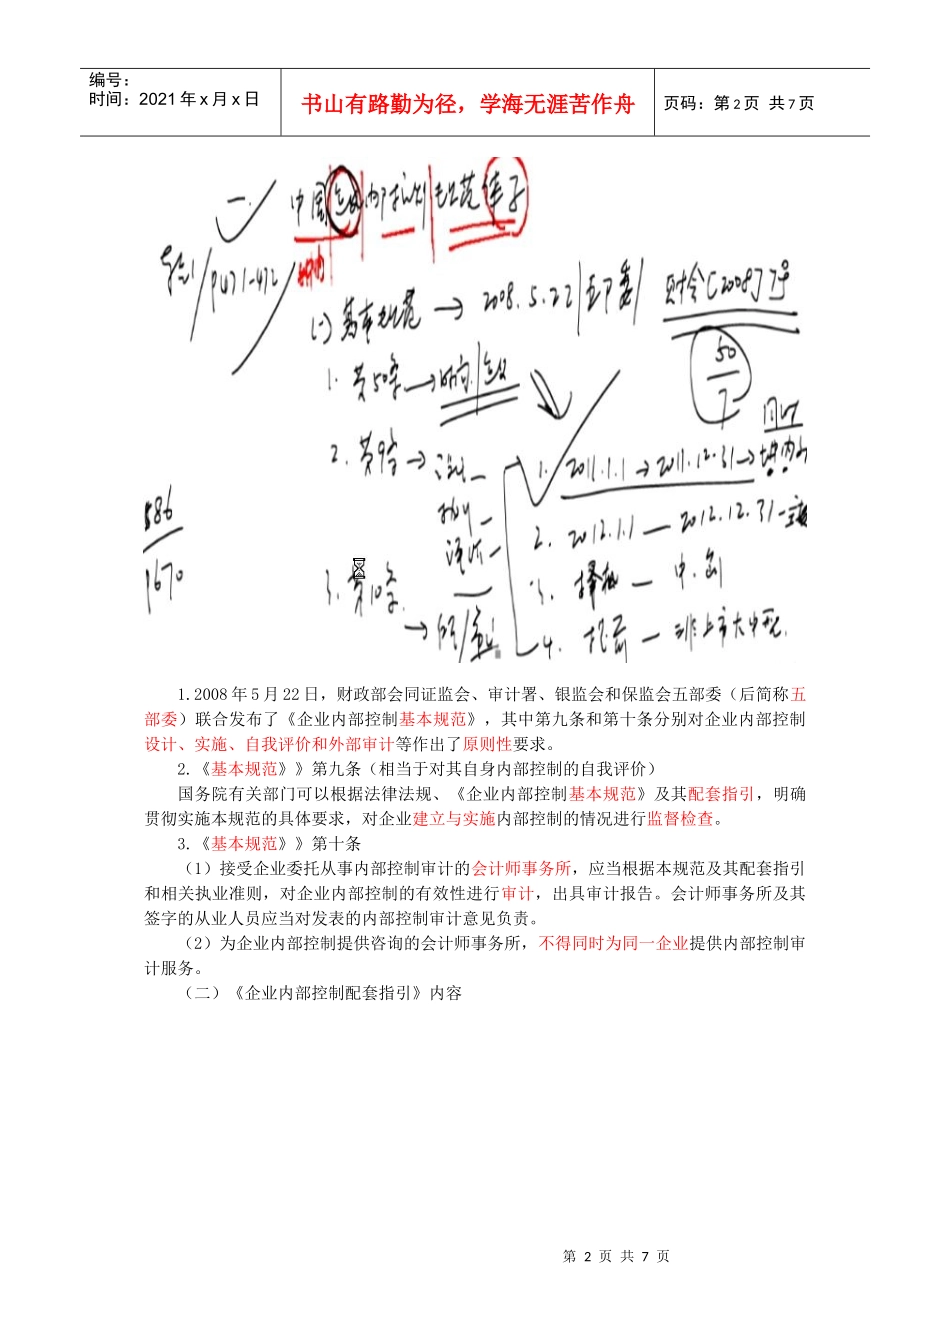 编号：
时间：2021年x月x日
书山有路勤为径，学海无涯苦作舟
页码：第2页 共7页
一、
中国企业内部控制规范体系
P471-472
(一)基本规范→2008.5.22 五部委 财会[2008]7号
50
7
1. 第50条→
2. 第9条→
1. 2011.1.1→2011.12.31→境内外
同时
586
1670
2. 2012.1.1—2012.12.31—主板
3. 择机—中、创
3. 第10条
→
4. 提前—非上市大中型
1.2008年5月22日，财政部会同证监会、审计署、银监会和保监会五部委（后简称五
部委）联合发布了《企业内部控制基本规范》，其中第九条和第十条分别对企业内部控制
设计、实施、自我评价和外部审计等作出了原则性要求。
2.《基本规范》》第九条（相当于对其自身内部控制的自我评价）
国务院有关部门可以根据法律法规、《企业内部控制基本规范》及其配套指引，明确
贯彻实施本规范的具体要求，对企业建立与实施内部控制的情况进行监督检查。
3.《基本规范》》第十条
（1）接受企业委托从事内部控制审计的会计师事务所，应当根据本规范及其配套指引
和相关执业准则，对企业内部控制的有效性进行审计，出具审计报告。会计师事务所及其
签字的从业人员应当对发表的内部控制审计意见负责。
（2）为企业内部控制提供咨询的会计师事务所，不得同时为同一企业提供内部控制审
计服务。
（二）《企业内部控制配套指引》内容
第 2 页 共 7 页